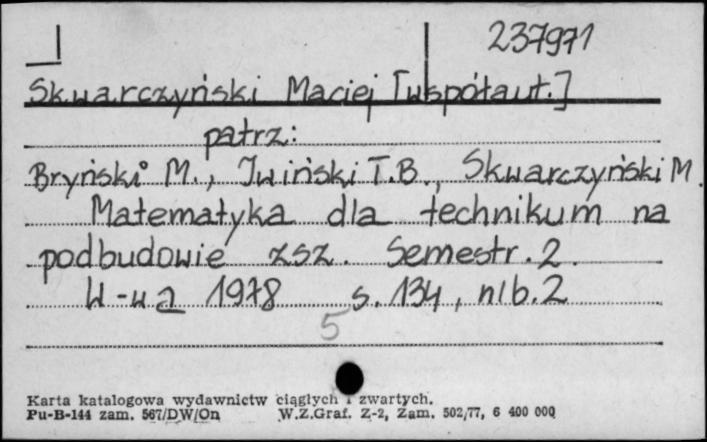 237971
Skwarczyński Maciej [współaut.]
patrz:
Bryński M., Iwiński T.B., Skwarczyński M.
Matematyka dla technikum na
podbudowie zsz. Semestr. 2.
W-wa 1978 s. 134, nlb. 2
5
Karta katalogowa wydawnictw ciągłych i zwartych.
Pu-B-144 zam. 567/DW/On W.Z.Graf. Z-2, Zam. 502/77, 6 400 000